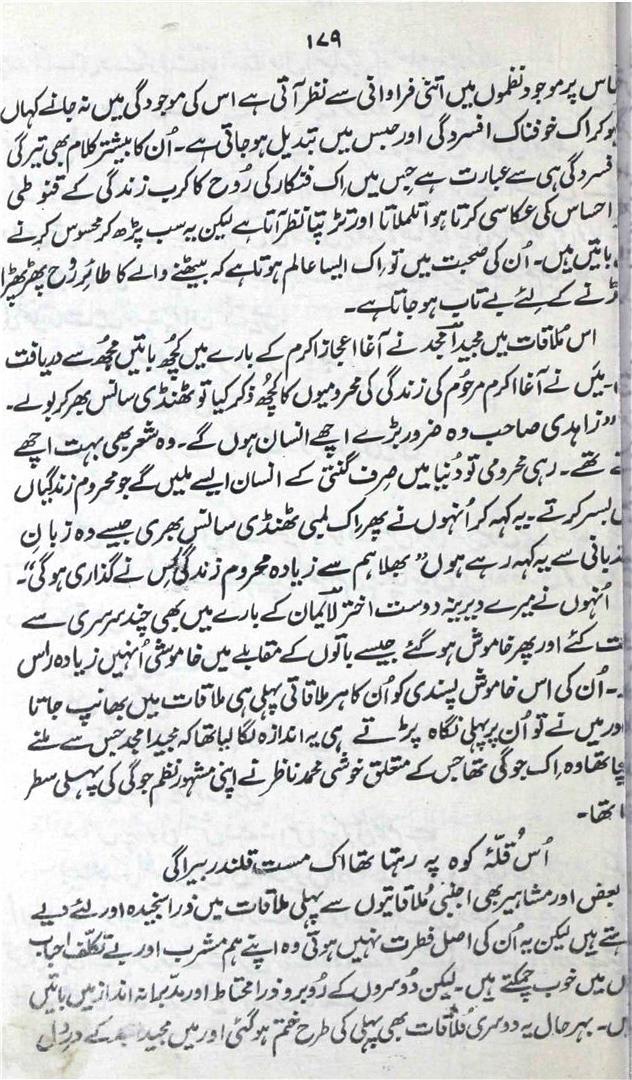 ۱۷۹
پر موجود نظموں میں اتنی فراوانی سے نظر آتی ہے اس کی موجودگی میں نہ جانے کہاں
ہوکر اک خوفناک افسردگی اور حبس میں تبدیل ہو جاتی ہے۔ اُن کا بیشتر کلام بھی تیرگی
افسردگی ہی سے عبارت ہے جس میں اک فنکار کی رُوح کا کرب زندگی کے قنوطی
احساس کی عکاسی کرتا ہوا تلملاتا اور تڑپتا نظر آتا ہے لیکن یہ سب پڑھ کر محسوس کرنے
باتیں ہیں۔ اُن کی صحبت میں تو اک ایسا عالم ہوتا ہے کہ بیٹھنے والے کا طائرِ رُوح پھڑپھڑا
اڑنے کے لئے بے تاب ہو جاتا ہے۔
اس مُلاقات میں مجید امجد نے آغا اعجاز اکرم کے بارے میں کچُھ باتیں مجُھ سے دریافت
میَں نے آغا اکرم مرحُوم کی زندگی کی محرومیوں کا کچُھ ذکر کیا تو ٹھنڈی سانس بھر کر بولے۔
"زاہدی صاحب وہ ضرور بڑے اچھے انسان ہوں گے۔ وہ شعر بھی بہت اچھے
تھے۔ رہی محرومی تو دُنیا میں صِرف گنتی کے انسان ایسے ملیں گے جو محروم زندگیاں
بسر کرتے۔ یہ کہہ کر اُنہوں نے پھر اک لمبی ٹھنڈی سانس بھری جیسے وہ زبانِ
سے یہ کہہ رہے ہوں" بھلا ہم سے زیادہ محروم زندگی کِس نے گذاری ہوگی"۔
اُنہوں نے میرے دیرینہ دوست اختر الایمان کے بارے میں بھی چند سرسری سے
کئے اور پھر خاموش ہو گئے جیسے باتوں کے مقابلے میں خاموشی اُنہیں زیادہ راس
۔ اُن کی اس خاموش پسندی کو اُن کا ہر ملاقاتی پہلی ہی ملاقات میں بھانپ جاتا
اور میں نے تو اُن پر پہلی نگاہ پڑتے ہی یہ اندازہ لگا لیا تھا کہ مجید امجد جس سے ملنے
تھا وہ اک جوگی تھا جس کے متعلق خوشی محمد ناظر نے اپنی مشہور نظم جوگی کی پہلی سطر
تھا۔
اُس قُلّۂ کوہ پہ رہتا تھا اک مست قلندر بیراگی
بعض اور مشاہیر بھی اجنبی مُلاقاتیوں سے پہلی ملاقات میں ذرا سنجیدہ اور لئے دیے
ہیں لیکن یہ اُن کی اصل فطرت نہیں ہوتی وہ اپنے ہم مشرب اور بے تکلّف احباب
میں خوب چمکتے ہیں۔ لیکن دُوسروں کے رُوبرو ذرا محتاط اور مدبّرانہ انداز میں باتیں
۔ بہرحال یہ دوسری مُلاقات بھی پہلی کی طرح ختم ہو گئی اور میں مجید کے